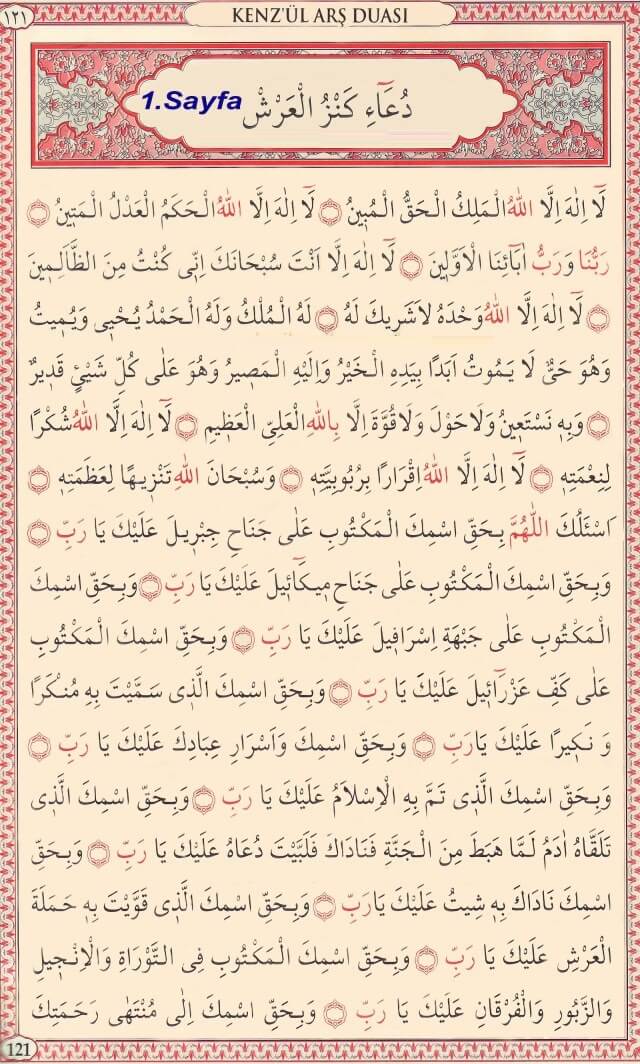 ١٢١
KENZ'ÜL ARŞ DUASI
1.Sayfa
دُعَٓاءِ كَنْزُ الْعَرْشْ
لَٓا اِلٰهَ اِلَّا اللّٰهُ الْمَلِكُ الْحَقُّ الْمُبِينُ ۝ لَٓا اِلٰهَ اِلَّا اللّٰهُ الْحَكَمُ الْعَدْلُ الْمَتِينُ ۝
رَبُّنَا وَرَبُّ اٰبَائِنَا الْاَوَّلِينَ ۝ لَٓا اِلٰهَ اِلَّا اَنْتَ سُبْحَانَكَ اِنِّى كُنْتُ مِنَ الظَّالِمِينَ
۝ لَٓا اِلٰهَ اِلَّا اللّٰهُ وَحْدَهُ لَاشَرِيكَ لَهُ ۝ لَهُ الْمُلْكُ وَلَهُ الْحَمْدُ يُحْيِى وَيُمِيتُ
وَهُوَ حَىٌّ لَا يَمُوتُ اَبَدًا بِيَدِهِ الْخَيْرُ وَاِلَيْهِ الْمَصِيرُ وَهُوَ عَلٰى كُلِّ شَيْئٍ قَدِيرٌ
۝ وَبِهِ نَسْتَعِينُ وَلَاحَوْلَ وَلَاقُوَّةَ اِلَّا بِاللّٰهِ الْعَلِىِّ الْعَظِيمِ ۝ لَٓا اِلٰهَ اِلَّا اللّٰهُ شُكْرًا
لِنِعْمَتِهِ ۝ لَٓا اِلٰهَ اِلَّا اللّٰهُ اِقْرَارًا بِرُبُوبِيَّتِهِ ۝ وَسُبْحَانَ اللّٰهِ تَنْزِيهًا لِعَظَمَتِهِ ۝
اَسْئَلُكَ اللّٰهُمَّ بِحَقِّ اسْمِكَ الْمَكْتُوبِ عَلٰى جَنَاحِ جِبْرِيلَ عَلَيْكَ يَا رَبِّ ۝
وَبِحَقِّ اسْمِكَ الْمَكْتُوبِ عَلٰى جَنَاحِ مِيكَٓائِيلَ عَلَيْكَ يَا رَبِّ ۝ وَبِحَقِّ اسْمِكَ
الْمَكْتُوبِ عَلٰى جَبْهَةِ اِسْرَافِيلَ عَلَيْكَ يَا رَبِّ ۝ وَبِحَقِّ اسْمِكَ الْمَكْتُوبِ
عَلٰى كَفِّ عَزْرَٓائِيلَ عَلَيْكَ يَا رَبِّ ۝ وَبِحَقِّ اسْمِكَ الَّذِى سَمَّيْتَ بِهِ مُنْكَرًا
وَ نَكِيرًا عَلَيْكَ يَارَبِّ ۝ وَبِحَقِّ اسْمِكَ وَاَسْرَارِ عِبَادِكَ عَلَيْكَ يَا رَبِّ ۝
وَبِحَقِّ اسْمِكَ الَّذِى تَمَّ بِهِ الْاِسْلَامُ عَلَيْكَ يَا رَبِّ ۝ وَبِحَقِّ اسْمِكَ الَّذِى
تَلَقَّاهُ اٰدَمُ لَمَّا هَبَطَ مِنَ الْجَنَّةِ فَنَادَاكَ فَلَبَّيْتَ دُعَاهُ عَلَيْكَ يَا رَبِّ ۝ وَبِحَقِّ
اسْمِكَ نَادَاكَ بِهِ شِيتُ عَلَيْكَ يَارَبِّ ۝ وَبِحَقِّ اسْمِكَ الَّذِى قَوَّيْتَ بِهِ حَمَلَةَ
الْعَرْشِ عَلَيْكَ يَا رَبِّ ۝ وَبِحَقِّ اسْمِكَ الْمَكْتُوبِ فِى التَّوْرَاةِ وَالْاِنْجِيلِ
وَالزَّبُورِ وَالْفُرْقَانِ عَلَيْكَ يَا رَبِّ ۝ وَبِحَقِّ اسْمِكَ اِلٰى مُنْتَهٰى رَحْمَتِكَ
121